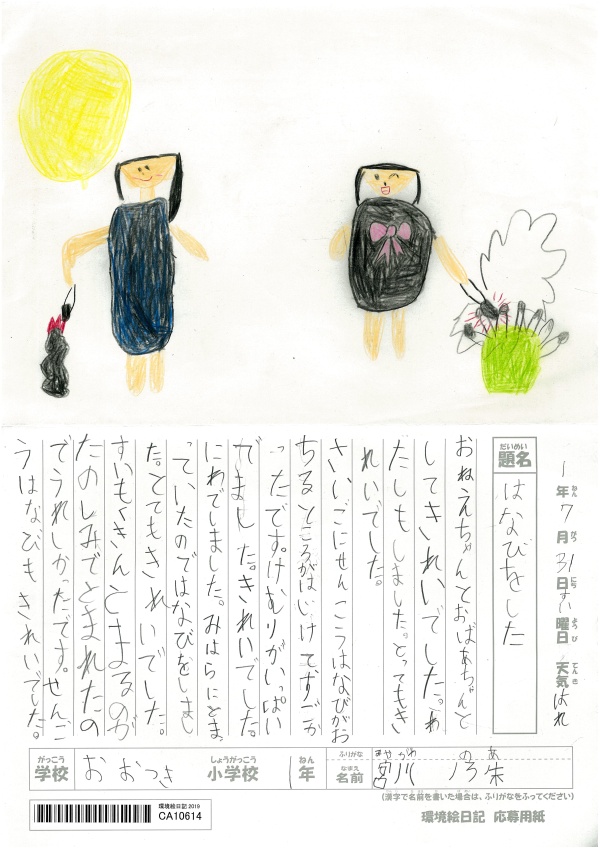 1年7月31日すい曜日 天気 はれ
ねん がつ にち ようび てんき
だいめい
題名 はなびをした
おねえちゃんとおばあちゃんと
してきれいでした。わ
たしもしました。とってもき
れいでした。
さいごにせんこうはなびがお
ちるところがはじけて、すごか
ったです。けむりがいっぱい
でました。きれいでした。
にわでしました。みはらにとま
っていたのではなびをしまし
た。とてもきれいでした。
すいもくきんとまるのが
たのしみでとまれたの
でうれしかったです。せんご
うはなびもきれいでした。
がっこう しょうがっこう ねん ふりがな のあ
学校 おおつき 小学校 1年 なまえ 名前 宮川 乃朱
(漢字で名前を書いた場合は、ふりがなをふってください)
環境絵日記 2019
CA10614
環境絵日記 応募用紙